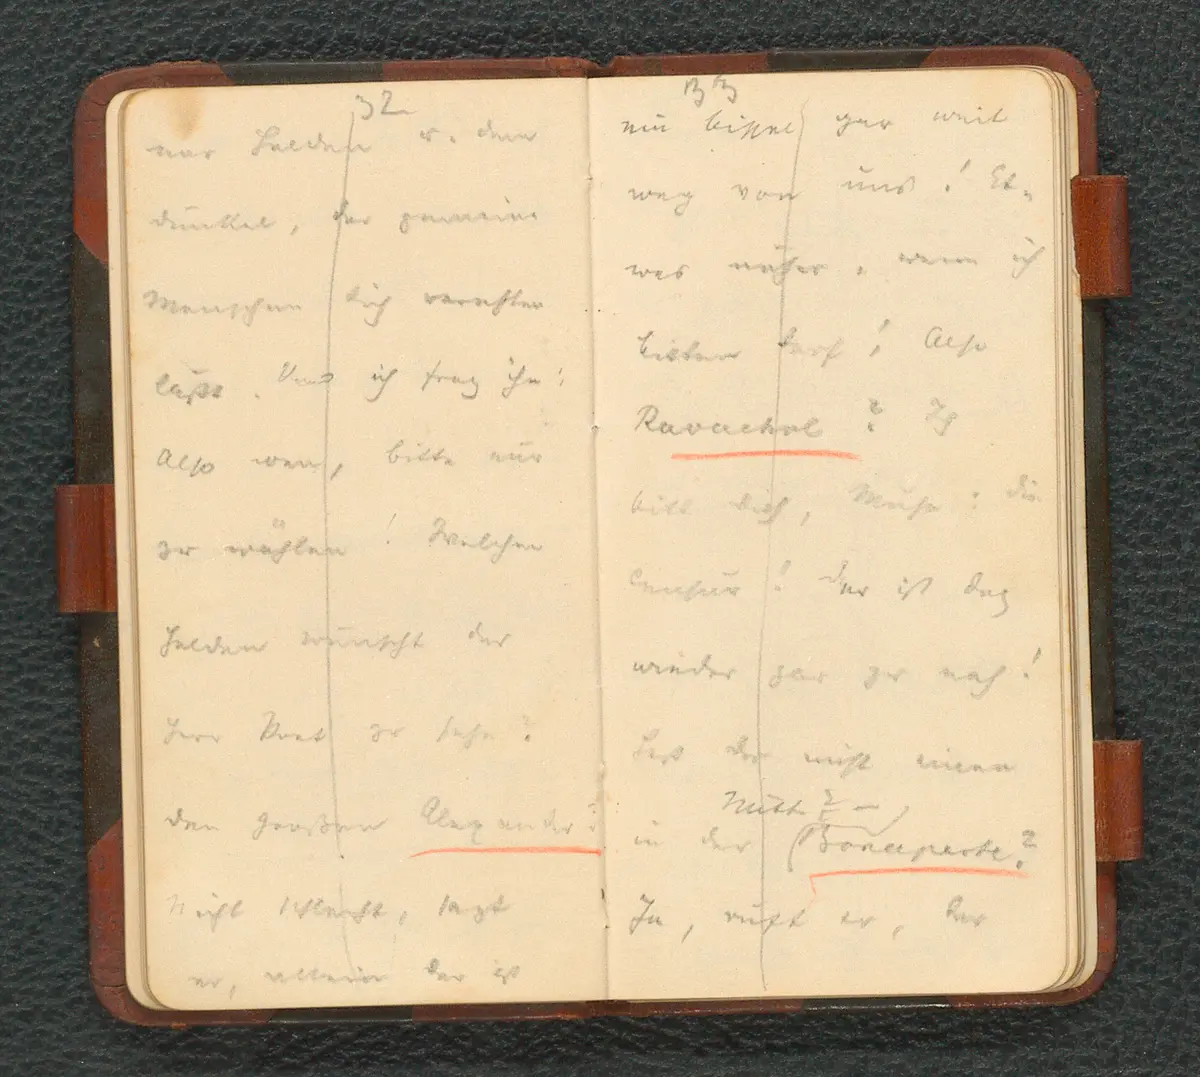 32
nur Helden u. dem
dünkel, der gemeine
Menschen dich verachten
lässt. Und ich frag ihn:
Also wen, bitte nur
zu wählen! Welchen
Helden wünscht der
Herr Poet zu sehn?
den großen Alexander?
Nicht schlecht, sagt
er, allein der ist
33
ein bissel gar weit
weg von uns! Et-
was näher, wenn ich
bitten darf! Also
Ravachol? Ich
bitt dich, Muse: die
Censur! Der ist doch
wieder gar zu nah!
Hast du nicht einen
in der Mitte? —
Bonaparte?
Ja, ruft er, der